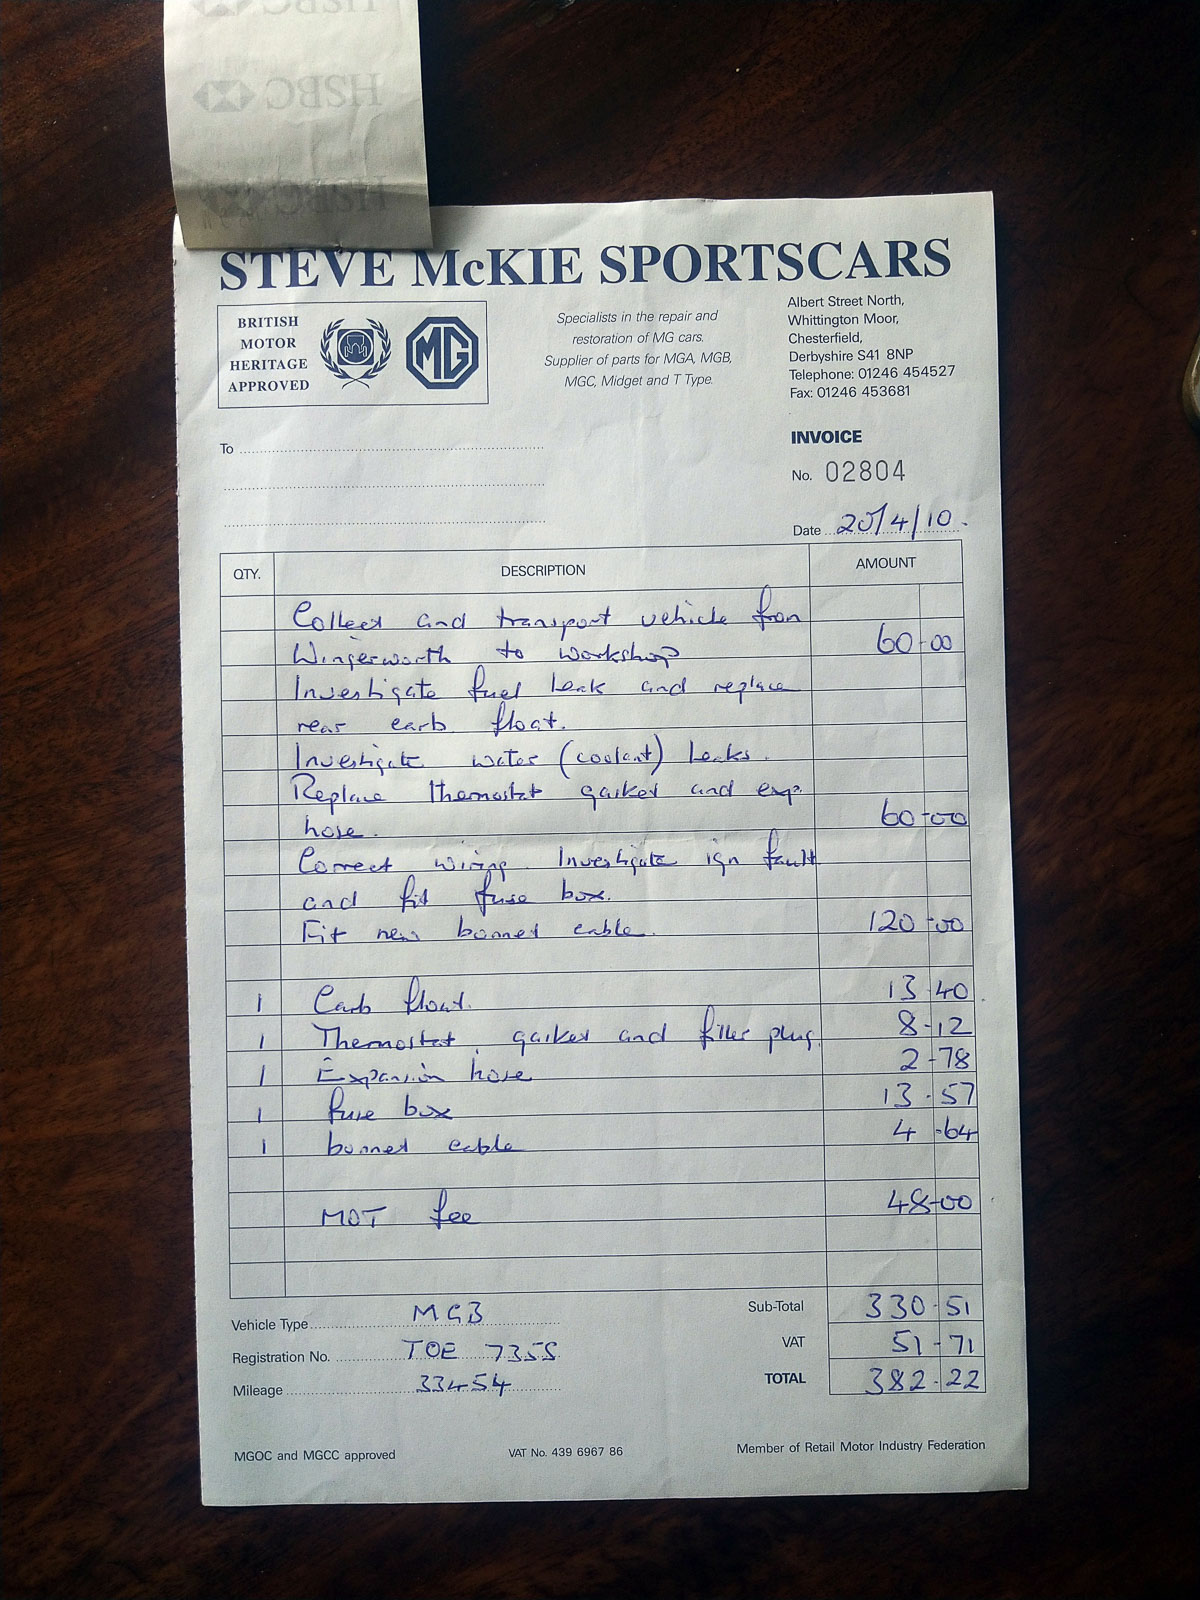 HSBC
HSBC
HSBC
STEVE McKIE SPORTSCARS
BRITISH
MOTOR
HERITAGE
APPROVED
MG
Specialists in the repair and
restoration of MG cars.
Supplier of parts for MGA, MGB,
MGC, Midget and T Type.
Albert Street North,
Whittington Moor,
Chesterfield,
Derbyshire S41 8NP
Telephone: 01246 454527
Fax: 01246 453681
To
INVOICE
No. 02804
Date 20/4/10.
QTY. DESCRIPTION AMOUNT
Collect and transport vehicle from
Wingerworth to workshop 60-00
Investigate fuel leak and replace
rear carb float.
Investigate water (coolant) leaks.
Replace thermostat gasket and exp.
hose. 60-00
Correct wiring. Investigate ign fault
and fit fuse box.
Fit new bonnet cable. 120-00
1 Carb float. 13-40
1 Thermostat, gasket and filler plug. 8-12
1 Expansion hose 2-78
1 fuse box 13-57
1 bonnet cable 4-64
MOT fee 48-00
Vehicle Type MGB
Registration No. TOE 735S
Mileage 33454
Sub-Total 330-51
VAT 51-71
TOTAL 382-22
MGOC and MGCC approved
VAT No. 439 6967 86
Member of Retail Motor Industry Federation